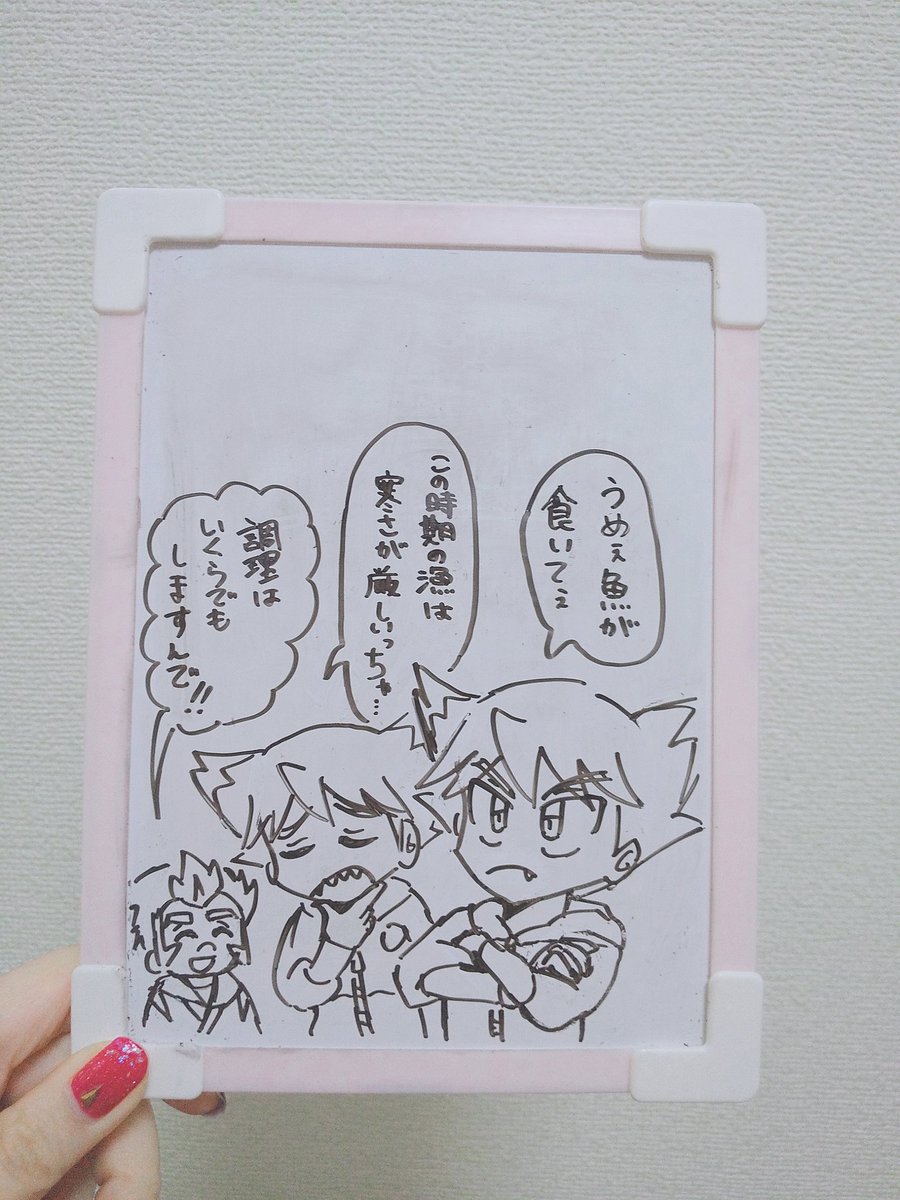 うめぇ魚が
食いてぇ
この時期の漁は
寒さが厳しいっちゃ…
調理は
いくらでも
しますんで!!